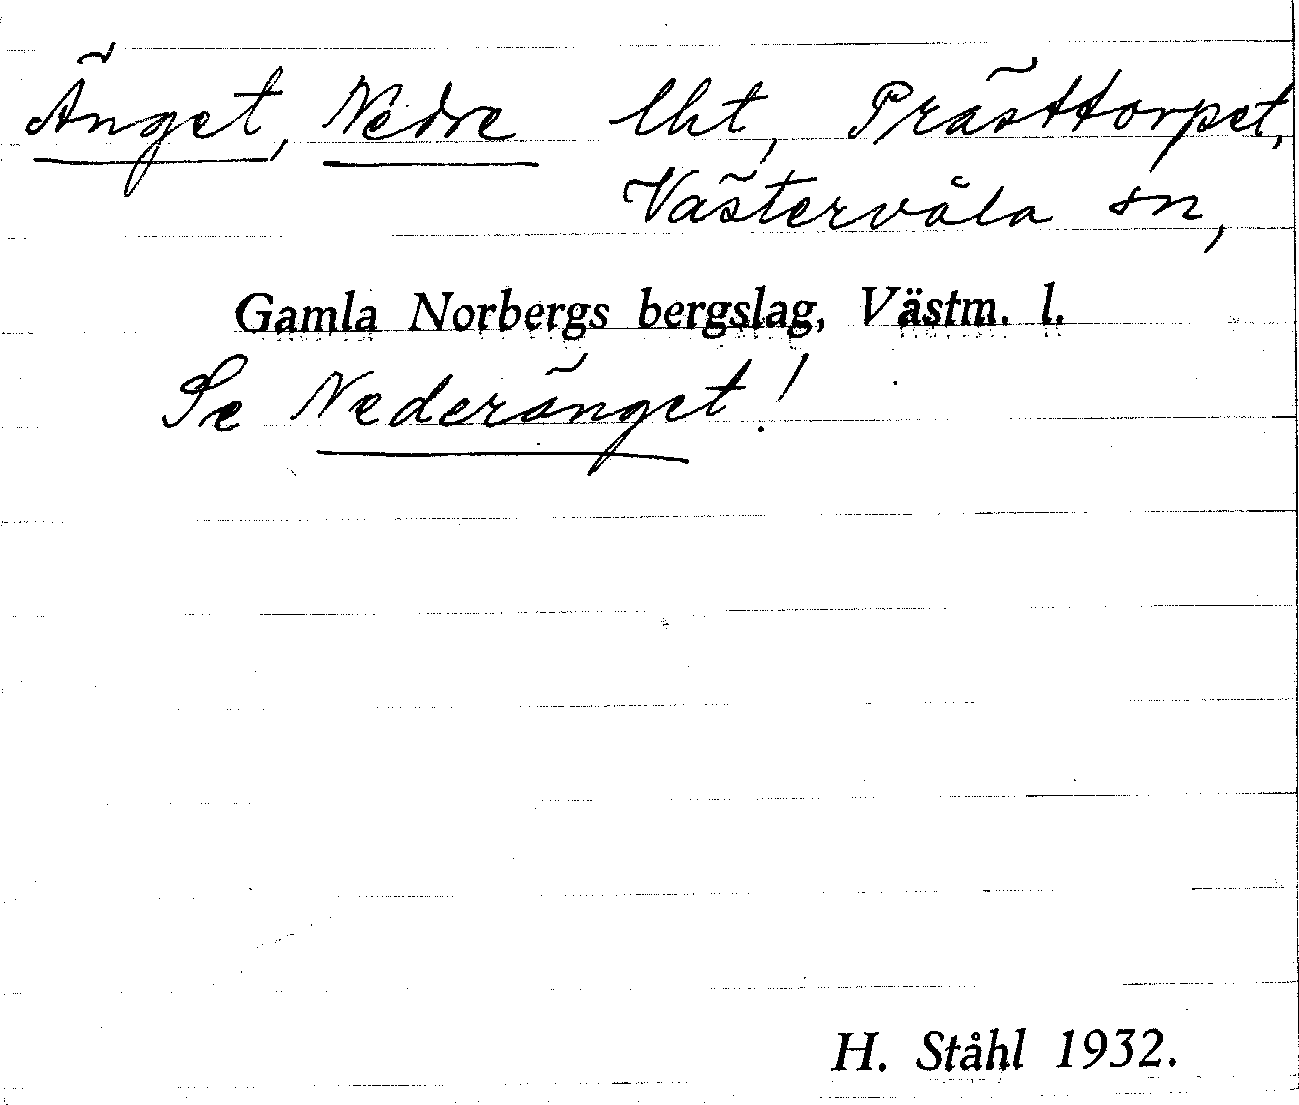 Änget, Nedre lht, Prästtorpet,
Västervåla sn,
Gamla Norbergs bergslag, Västm. l.
Se Nederänget!
H. Ståhl 1932.